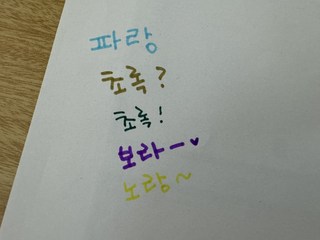 파랑
초록?
초록!
보라ー♥
노랑~